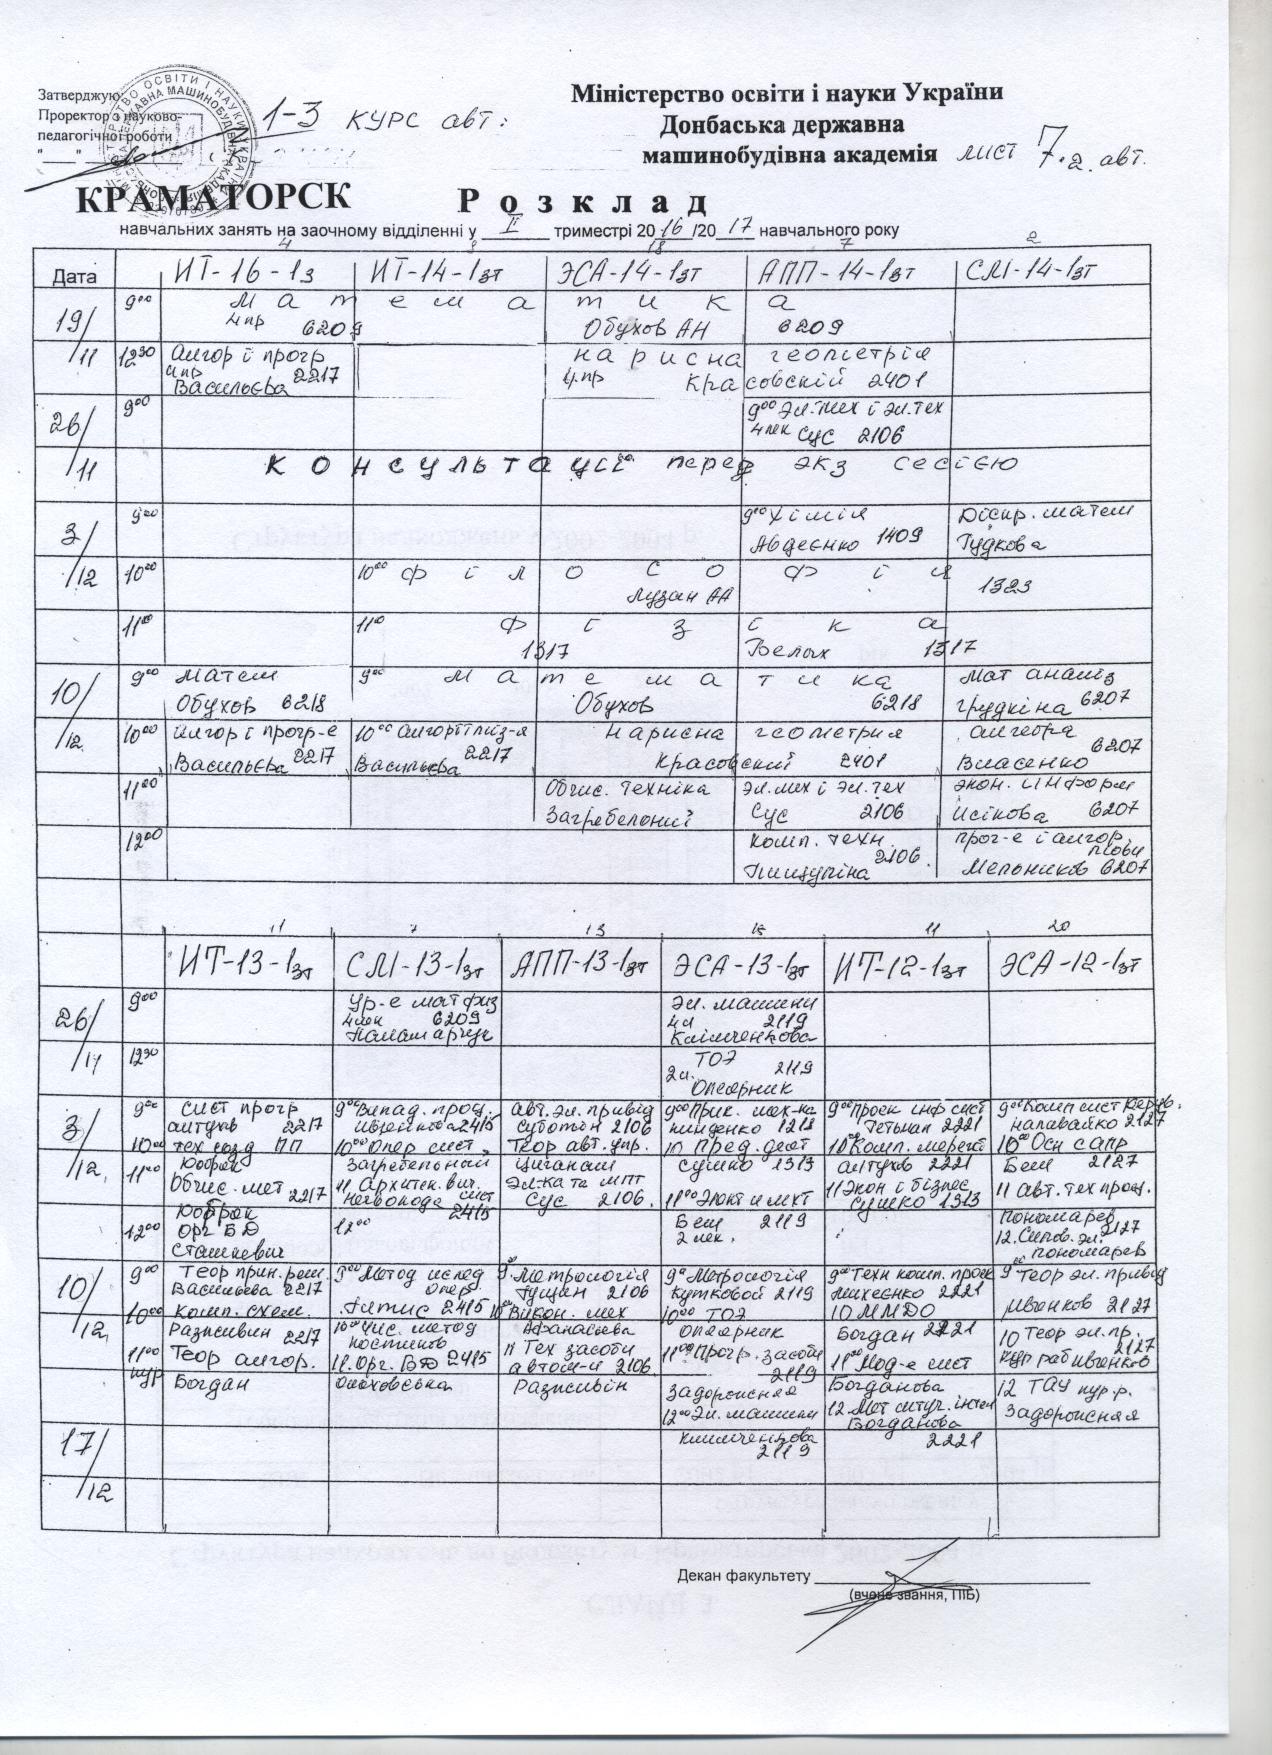 Затверджую
Проректор з науково-
педагогічної роботи
1-3 КУРС авт:
Міністерство освіти і науки України
Донбаська державна
машинобудівна академія
лист 7.2. авт.
КРАМАТОРСК
Розклад
навчальних занять на заочному відділенні у II триместрі 2016/2017 навчального року
4 9 18 7 2
Дата ИТ-16-1з ИТ-14-1зт ЭСА-14-1зт АПП-14-1зт СМ-14-1зт
19/11 9⁰⁰ математика
4пр 6209 Обухов АН 6209
12³⁰ Алгор і прогр нарисна геометрія
4пр Васильєва 2217 4.пр Красовскій 2401
26/11 9⁰⁰ 9⁰⁰ Эл.мех і эл.тех
4лек Сус 2106
консультації перед экз сесією
3/12 9⁰⁰ 9⁰⁰ Хімія Діскр. матем
Авдєєнко 1409 Гудкова
10⁰⁰ 10⁰⁰ філософія
Лузан АА 1323
11⁰⁰ 11⁰ Фізіка
1317 Белых 1317
10/12 9⁰⁰ матем 9⁰⁰ математика мат аналіз
Обухов 6218 Обухов 6218 Грудкіна 6207
10⁰⁰ Алгор і прогр-е 10⁰⁰ Алгоритміз-я Нарисна геометрия алгебра
Васильєва 2217 Васильєва 2217 Красовский 2401 Власенко 6207
11⁰⁰ Обчис. техніка Эл.мех і эл.тех экон. інформ
Загребельний Сус 2106 Исікова 6207
12⁰⁰ Комп. техн. прог-е і алгор. мови
2106. Мельников 6207
11 7 13 15 11 20
ИТ-13-1зт СМ-13-1зт АПП-13-1зт ЭСА-13-1зт ИТ-12-1зт ЭСА-12-1зт
26/11 9⁰⁰ Ур-е мат физ Эл. машини
4лек 6209 4л 2119
Паламарчук Клімченкова
12³⁰ ТОЭ
2л. 2119
3/12 9⁰⁰ сист прогр 9⁰⁰ Випад. проц. Авт. эл. привід 9⁰⁰ Прик. мех-ка 9⁰⁰ Проек инф сист 9⁰⁰ Комп сист керув.
Алтухов 2217 2415 Суботін 2106 1212 Гетьман 2221 Наливайко 2127
10⁰⁰ тех созд ПП 10⁰⁰ Опер сист, Теор авт. упр. 10 Пред. деят 10⁰⁰ Комп. мережі 10⁰⁰ Осн САПР
Загребельний Циганаш Сушко 1313 Алтухов 2221 Беш 2127
11⁰⁰ Обчис. мет 2217 11 Архитек. вич. сист Эл-ка та МПТ 11 Экон і бізнес 11 авт. тех проц.
2415 Сус 2106. Сушко 1313
12⁰⁰ Орг БД 12⁰⁰ Беш 2119 Пономарев
Сташкевич 2 лек. 12. Силов. эл. 2127
Пономарев
10/12 9⁰⁰ Теор прин. реш. 9⁰⁰ Метод исслед опер. 9. Метрологія 9⁰⁰ Метрологія 9⁰⁰ Техн комп. проек 9⁰⁰ Теор эл. привід
Васильева 2217 2415 Гущин 2106 Кутковой 2119 Михеєнко 2221 Ивченков 2127
10⁰⁰ Комп. схем. 10⁰⁰ Викон. мех 10⁰⁰ ТОЭ 10 ММДО
Разживин 2217 10⁰⁰ Чис. метод Афанасьева Богдан 2221 10 Теор эл. пр. 2127
11⁰⁰ Теор алгор. 11. Орг. БД 2415 11 Тех засоби 11⁰⁰ Прогр. засоби 11⁰⁰ Мод-е сист кур раб Ивченков
автом-и 2106. 2119
Богдан Разживін Задорожняя Богданова 12 ТАУ кур.р.
12⁰⁰ Эл. машини 12. Мет штуч. інтел Задорожняя
Богданова
17/12 Климченкова 2221
2119
Декан факультету
(вчене звання, ПІБ)